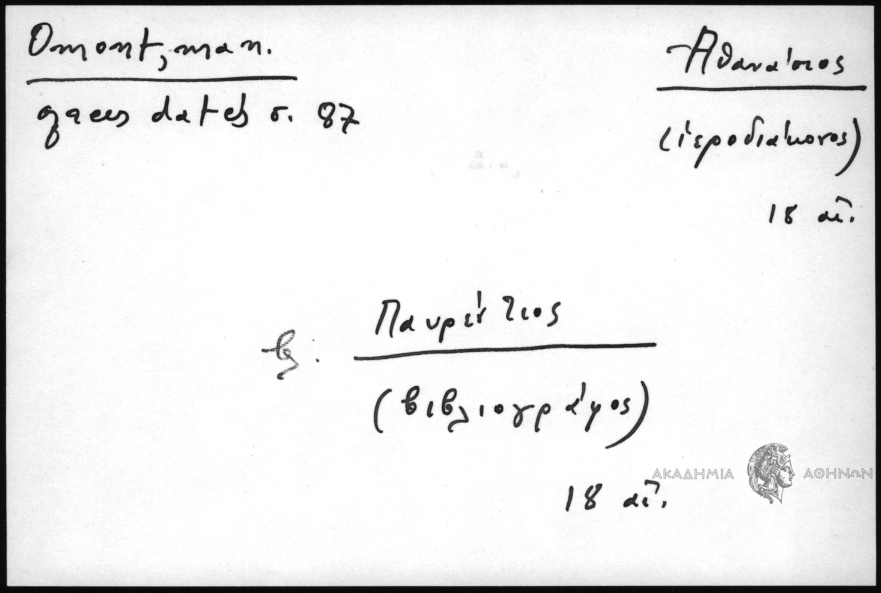 Omont, man.
grecs datés σ. 87
Ἀθανάσιος
(ἱεροδιάκονος)
18 αἰ.
βλ.
Λαυρέντιος
(βιβλιογράφος)
18 αἰ.
ΑΚΑΔΗΜΙΑ ΑΘΗΝΩΝ